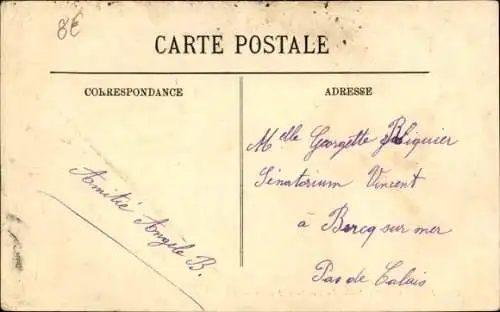 8€
CARTE POSTALE
CORRESPONDANCE
ADRESSE
Amitié Angèle B.
Melle Georgette Bliquier
Sénatorium Vincent
à Bercq sur mer
Pas de Calais